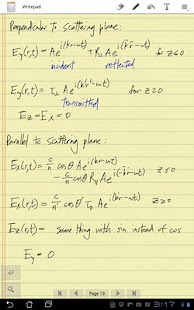 Writepad
Perpendicular to scattering plane:
Ey(r,t) = Ae^i(kr-ωt) + R⊥ Ae^i(k̃r-ωt) for z≤0
incident reflected
Ey(r,t) = T⊥ Ae^i(k'r-ωt) for z≥0
transmitted
Ez = Ex = 0
Parallel to scattering plane:
Ex(r,t) = c/n cosθ Ae^i(kr-ωt) z≤0
- c/n cosθ R∥ Ae^i(k̃r-ωt)
Ex(r,t) = c/n' cosθ' T∥ Ae^i(k'r-ωt) z≥0
Ez(r,t) = same thing with sin instead of cos
Ey = 0
Page 19
3:47